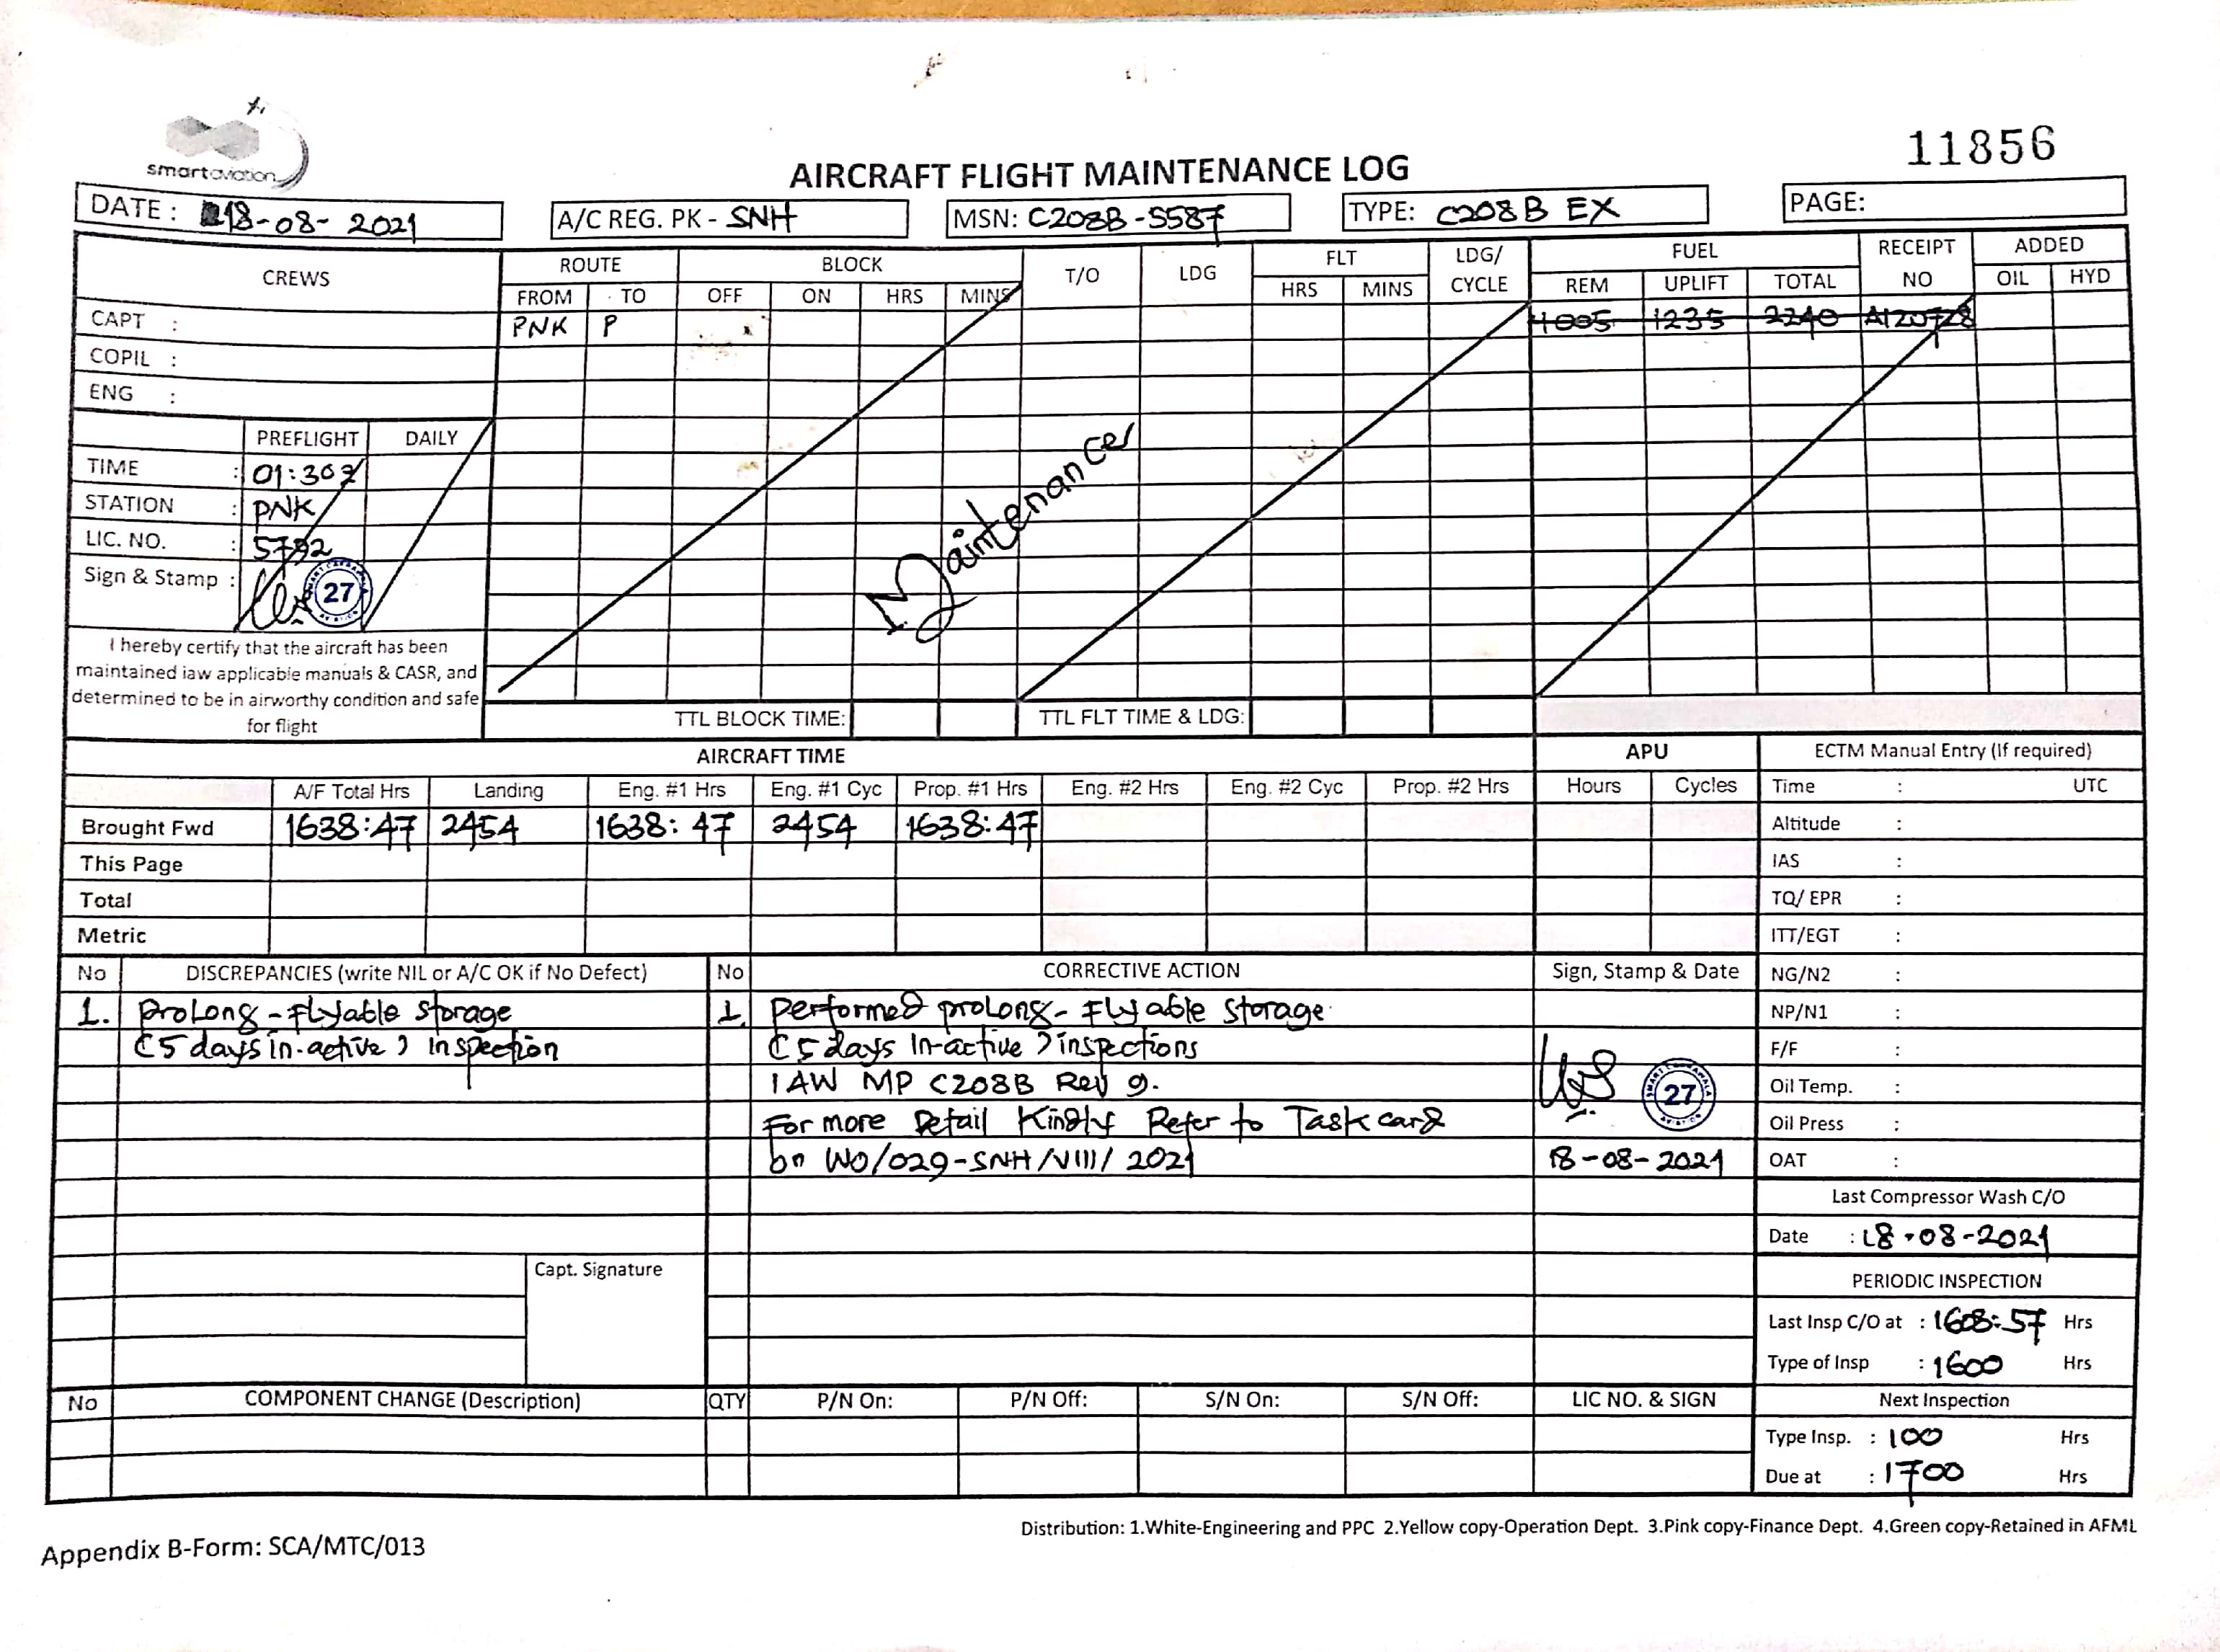 smart aviation
11856
AIRCRAFT FLIGHT MAINTENANCE LOG
DATE : 18-08-2021 A/C REG. PK - SNH MSN: C208B-5587 TYPE: C208B EX PAGE:
CREWS ROUTE BLOCK T/O LDG FLT LDG/ CYCLE FUEL RECEIPT NO ADDED
FROM TO OFF ON HRS MINS HRS MINS REM UPLIFT TOTAL OIL HYD
CAPT : PNK P 1005 1235 2240 A120728
COPIL :
ENG :
PREFLIGHT DAILY
TIME : 01:30Z
STATION : PNK
LIC. NO. : 5792
Sign & Stamp : 27
Maintenance
I hereby certify that the aircraft has been
maintained iaw applicable manuals & CASR, and
determined to be in airworthy condition and safe
for flight
TTL BLOCK TIME: TTL FLT TIME & LDG:
AIRCRAFT TIME APU ECTM Manual Entry (If required)
A/F Total Hrs Landing Eng. #1 Hrs Eng. #1 Cyc Prop. #1 Hrs Eng. #2 Hrs Eng. #2 Cyc Prop. #2 Hrs Hours Cycles Time : UTC
Brought Fwd 1638:47 2454 1638:47 2454 1638:47 Altitude :
This Page IAS :
Total TQ/ EPR :
Metric ITT/EGT :
No DISCREPANCIES (write NIL or A/C OK if No Defect) No CORRECTIVE ACTION Sign, Stamp & Date NG/N2 :
1. Prolong-Flyable Storage 1. Performed prolong-Flyable Storage NP/N1 :
(5 days in-active) inspection (5 days In-active) inspections F/F :
IAW MP C208B Rev 9. 27 Oil Temp. :
For more Detail Kindly Refer to Task card Oil Press :
on WO/029-SNH/VIII/2021 18-08-2021 OAT :
Last Compressor Wash C/O
Date : 18-08-2021
Capt. Signature PERIODIC INSPECTION
Last Insp C/O at : 1608:57 Hrs
Type of Insp : 1600 Hrs
No COMPONENT CHANGE (Description) QTY P/N On: P/N Off: S/N On: S/N Off: LIC NO. & SIGN Next Inspection
Type Insp. : 100 Hrs
Due at : 1700 Hrs
Distribution: 1.White-Engineering and PPC 2.Yellow copy-Operation Dept. 3.Pink copy-Finance Dept. 4.Green copy-Retained in AFML
Appendix B-Form: SCA/MTC/013